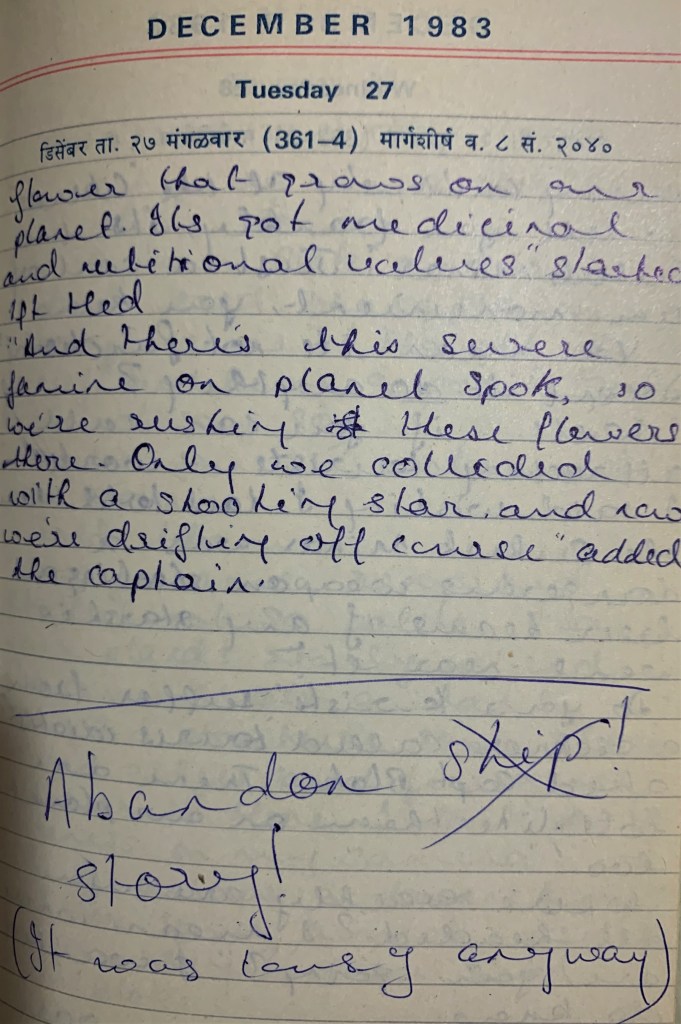 DECEMBER 1983
Tuesday 27
डिसेंबर ता. २७ मंगळवार (361-4) मार्गशीर्ष व. ८ सं. २०४०
flower that grows on our
planet. Its got medicinal
and nutritional values" started
Hed
"And there's this severe
famine on planet Spok, so
we're rushing these flowers
there. Only we collided
with a shooting star, and now
we're drifting off course" added
the captain.
Abandon ship!
story!
(It was lousy anyway)